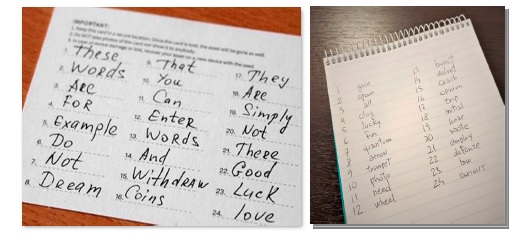 IMPORTANT:
1. Keep this card in a secure location. Once this card is lost, the asset will be gone as well.
2. Do NOT take photos of this card nor show it to anybody.
3. In case of device damage or lost, recover your asset on a new device with the seed.
1. These
2. WORDS
3. ARE
4. FOR
5. Example
6. Do
7. Not
8. Dream
9. That
10. You
11. Can
12. Enter
13. WORDS
14. And
15. Withdraw
16. Coins
17. They
18. Are
19. Simply
20. Not
21. There
22. Good
23. Luck
24. love
1
2 spawn
3 all
4 clog
5 lucky
6 fun
7 quantum
8
9 trumpet
10 photo
11 head
12 wheel
13 burst
14
15 crash
16
17 trip
18 initial
19 lunar
20
21 display
22 defense
23
24 various